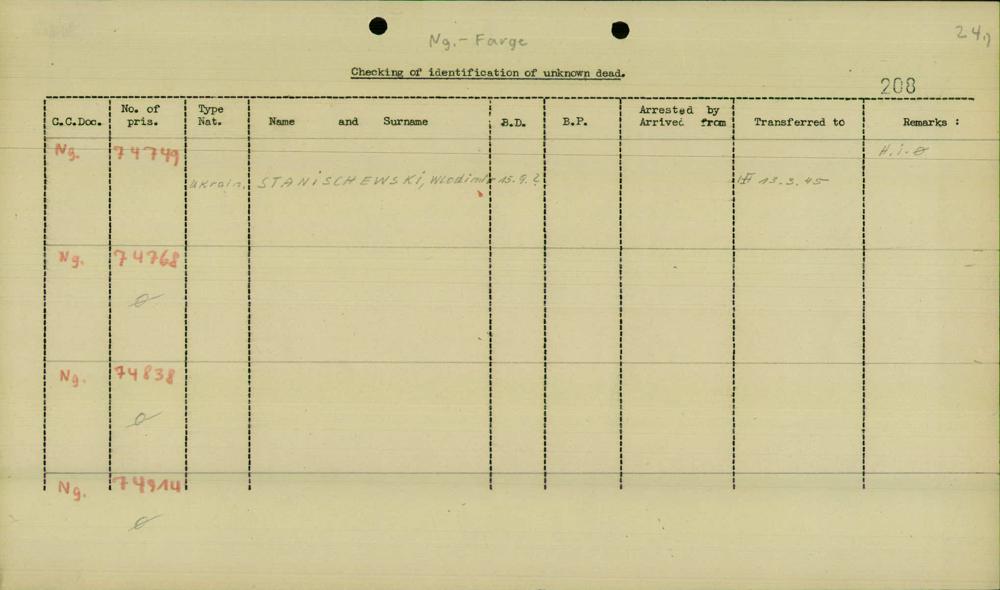 Ng.- Farge
24.)
Checking of identification of unknown dead.
208
C.C.Doc. No. of pris. Type Nat. Name and Surname B.D. B.P. Arrested by Arrived from Transferred to Remarks :
Ng. 74749 H.i.ø
Ukrain. STANiSCHEWSKi, Wlodimir 15.9.? 13.3.45
Ng. 74768
ø
Ng. 74838
ø
Ng. 74914
ø